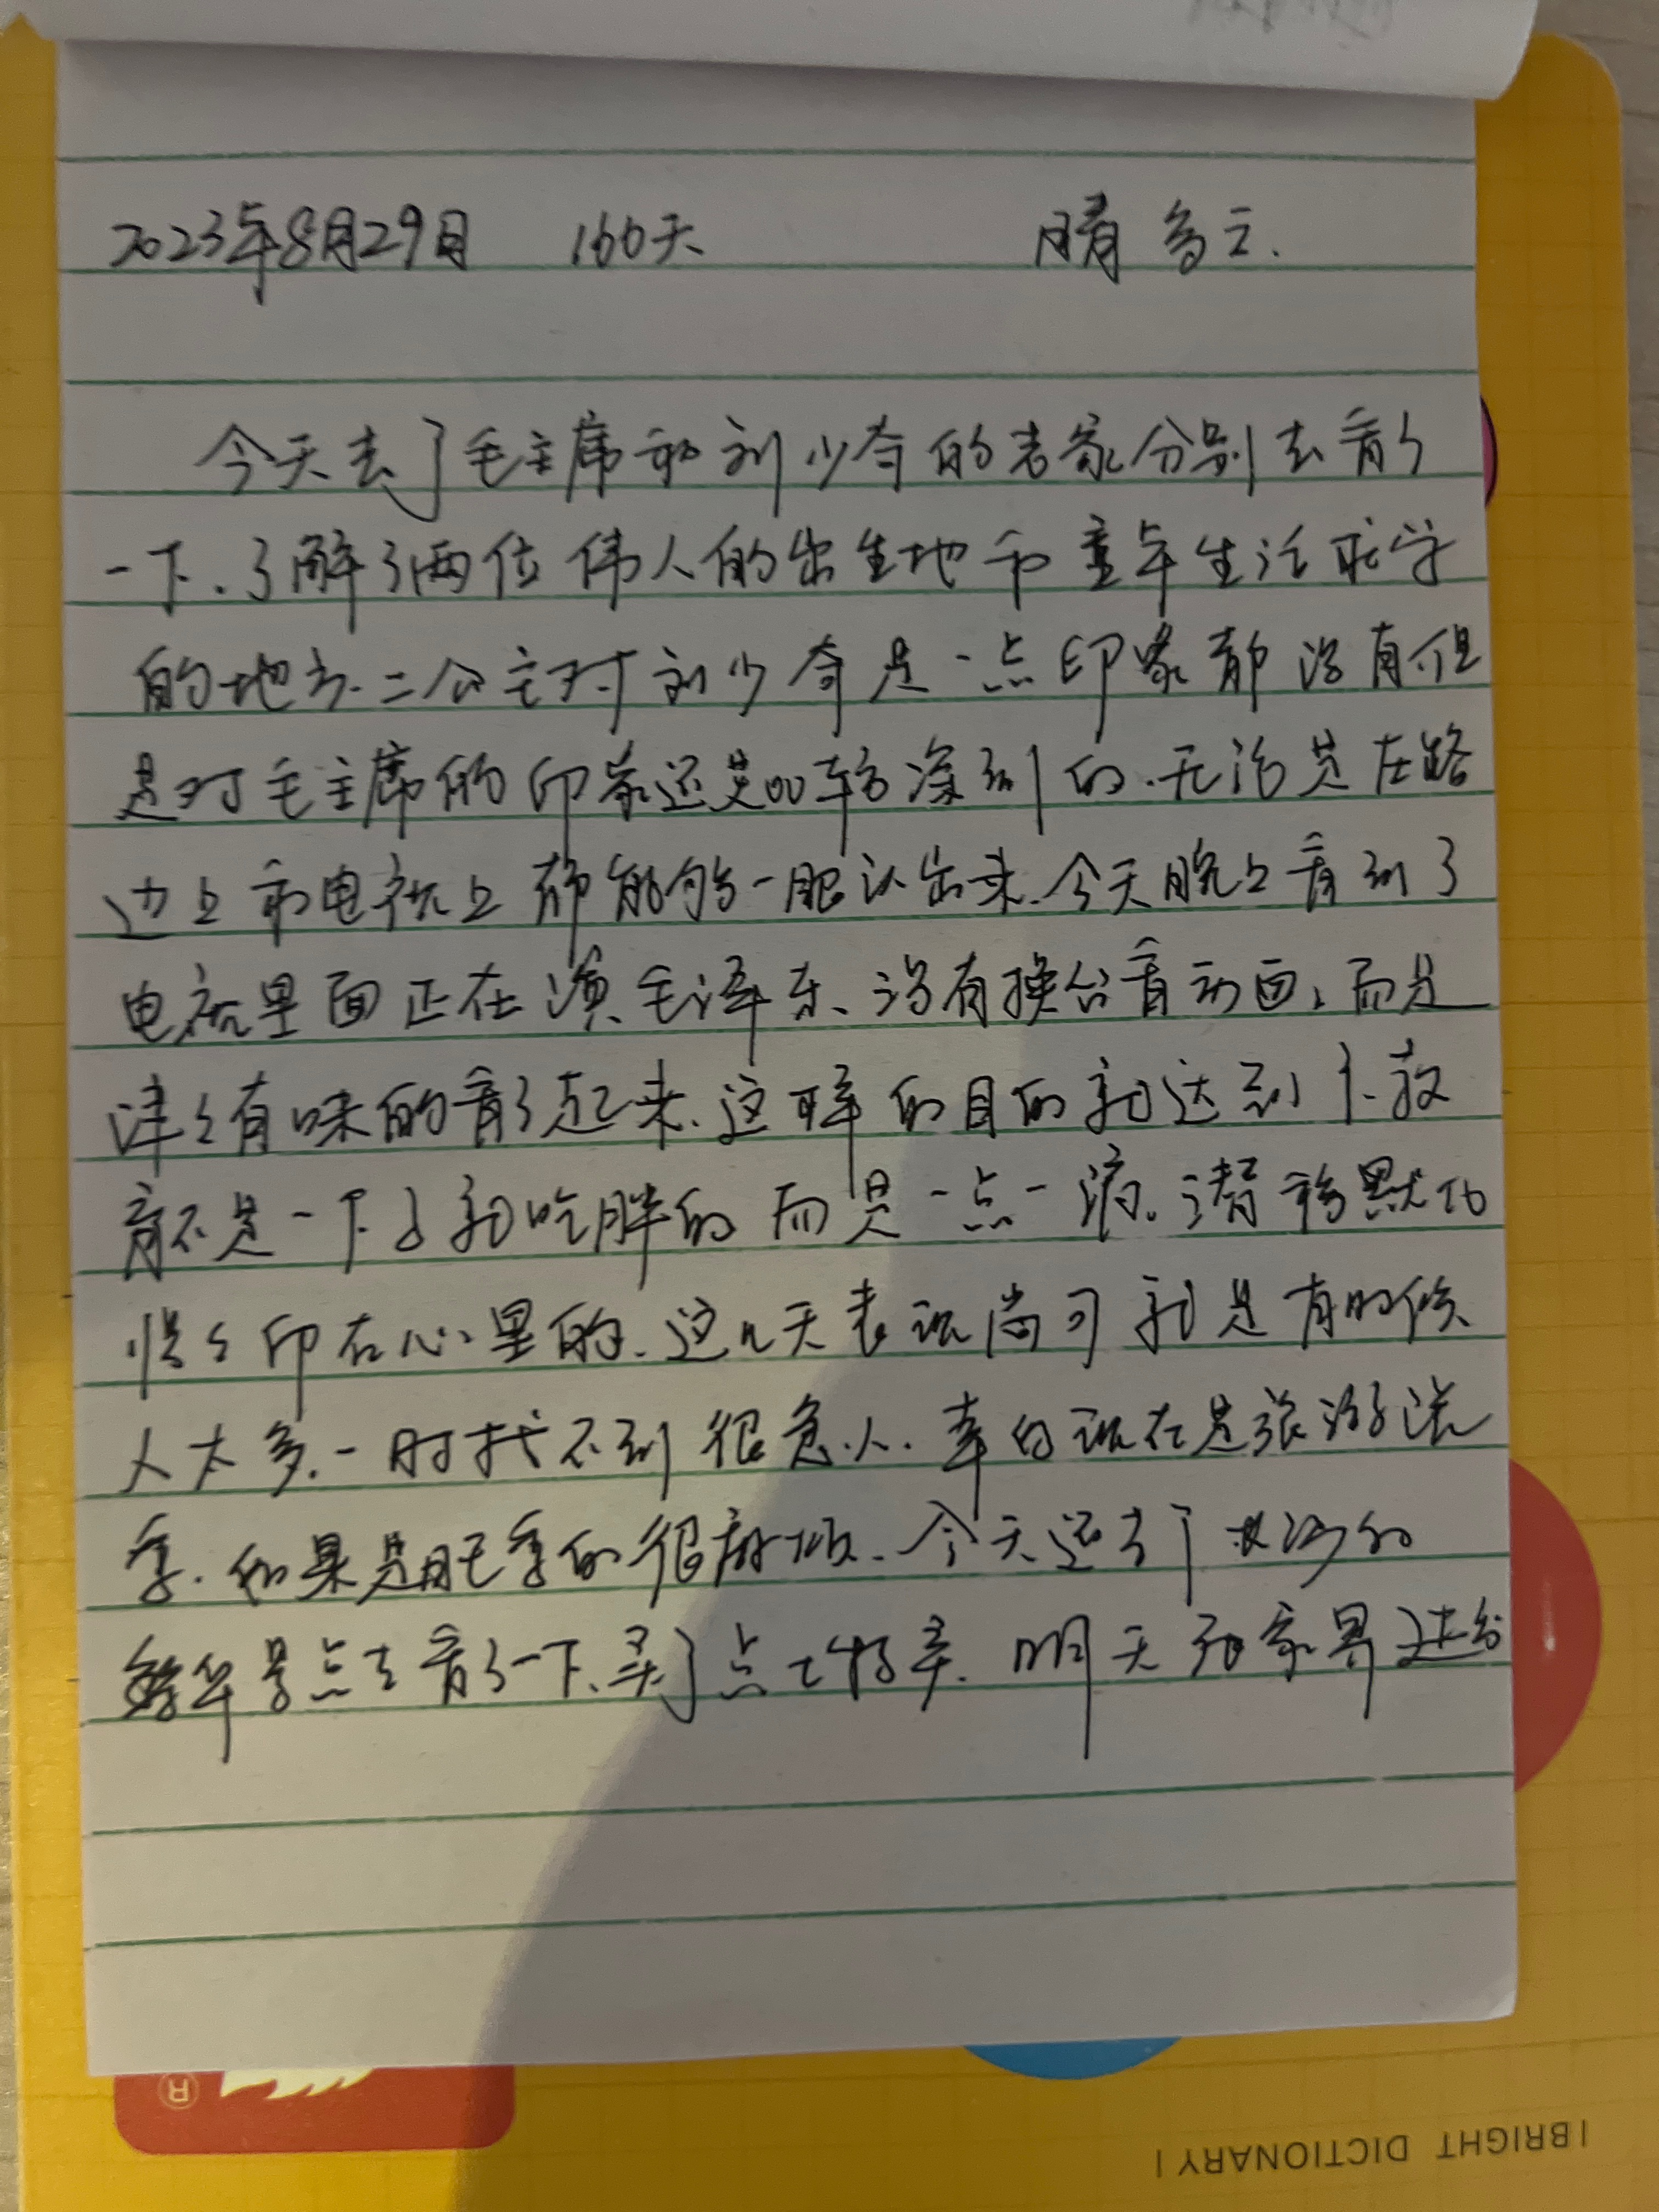 2023年8月29日 166天 晴 多云.
今天去了毛主席和刘少奇的老家分别去看了
一下.了解了两位伟人的出生地和童年生活求学
的地方.二公主对刘少奇是一点印象都没有但
是对毛主席的印象还是比较深刻的.无论是在路
边上和电视上都能够一眼认出来.今天晚上看到了
电视里面正在演毛泽东、没有换台看动画,而是
津津有味的看了起来.这样的目的就达到了.教
育不是一下子就吃胖的而是一点一滴.潜移默化
慢慢印在心里的.这几天表现尚可就是有时候
人太多.一时找不到很急人.幸的现在是旅游淡
季.如果是旺季的很麻烦.今天还去了长沙的
景点去看了一下.买了点土特产.明天张家界进发
®
| BRIGHT DICTIONARY |